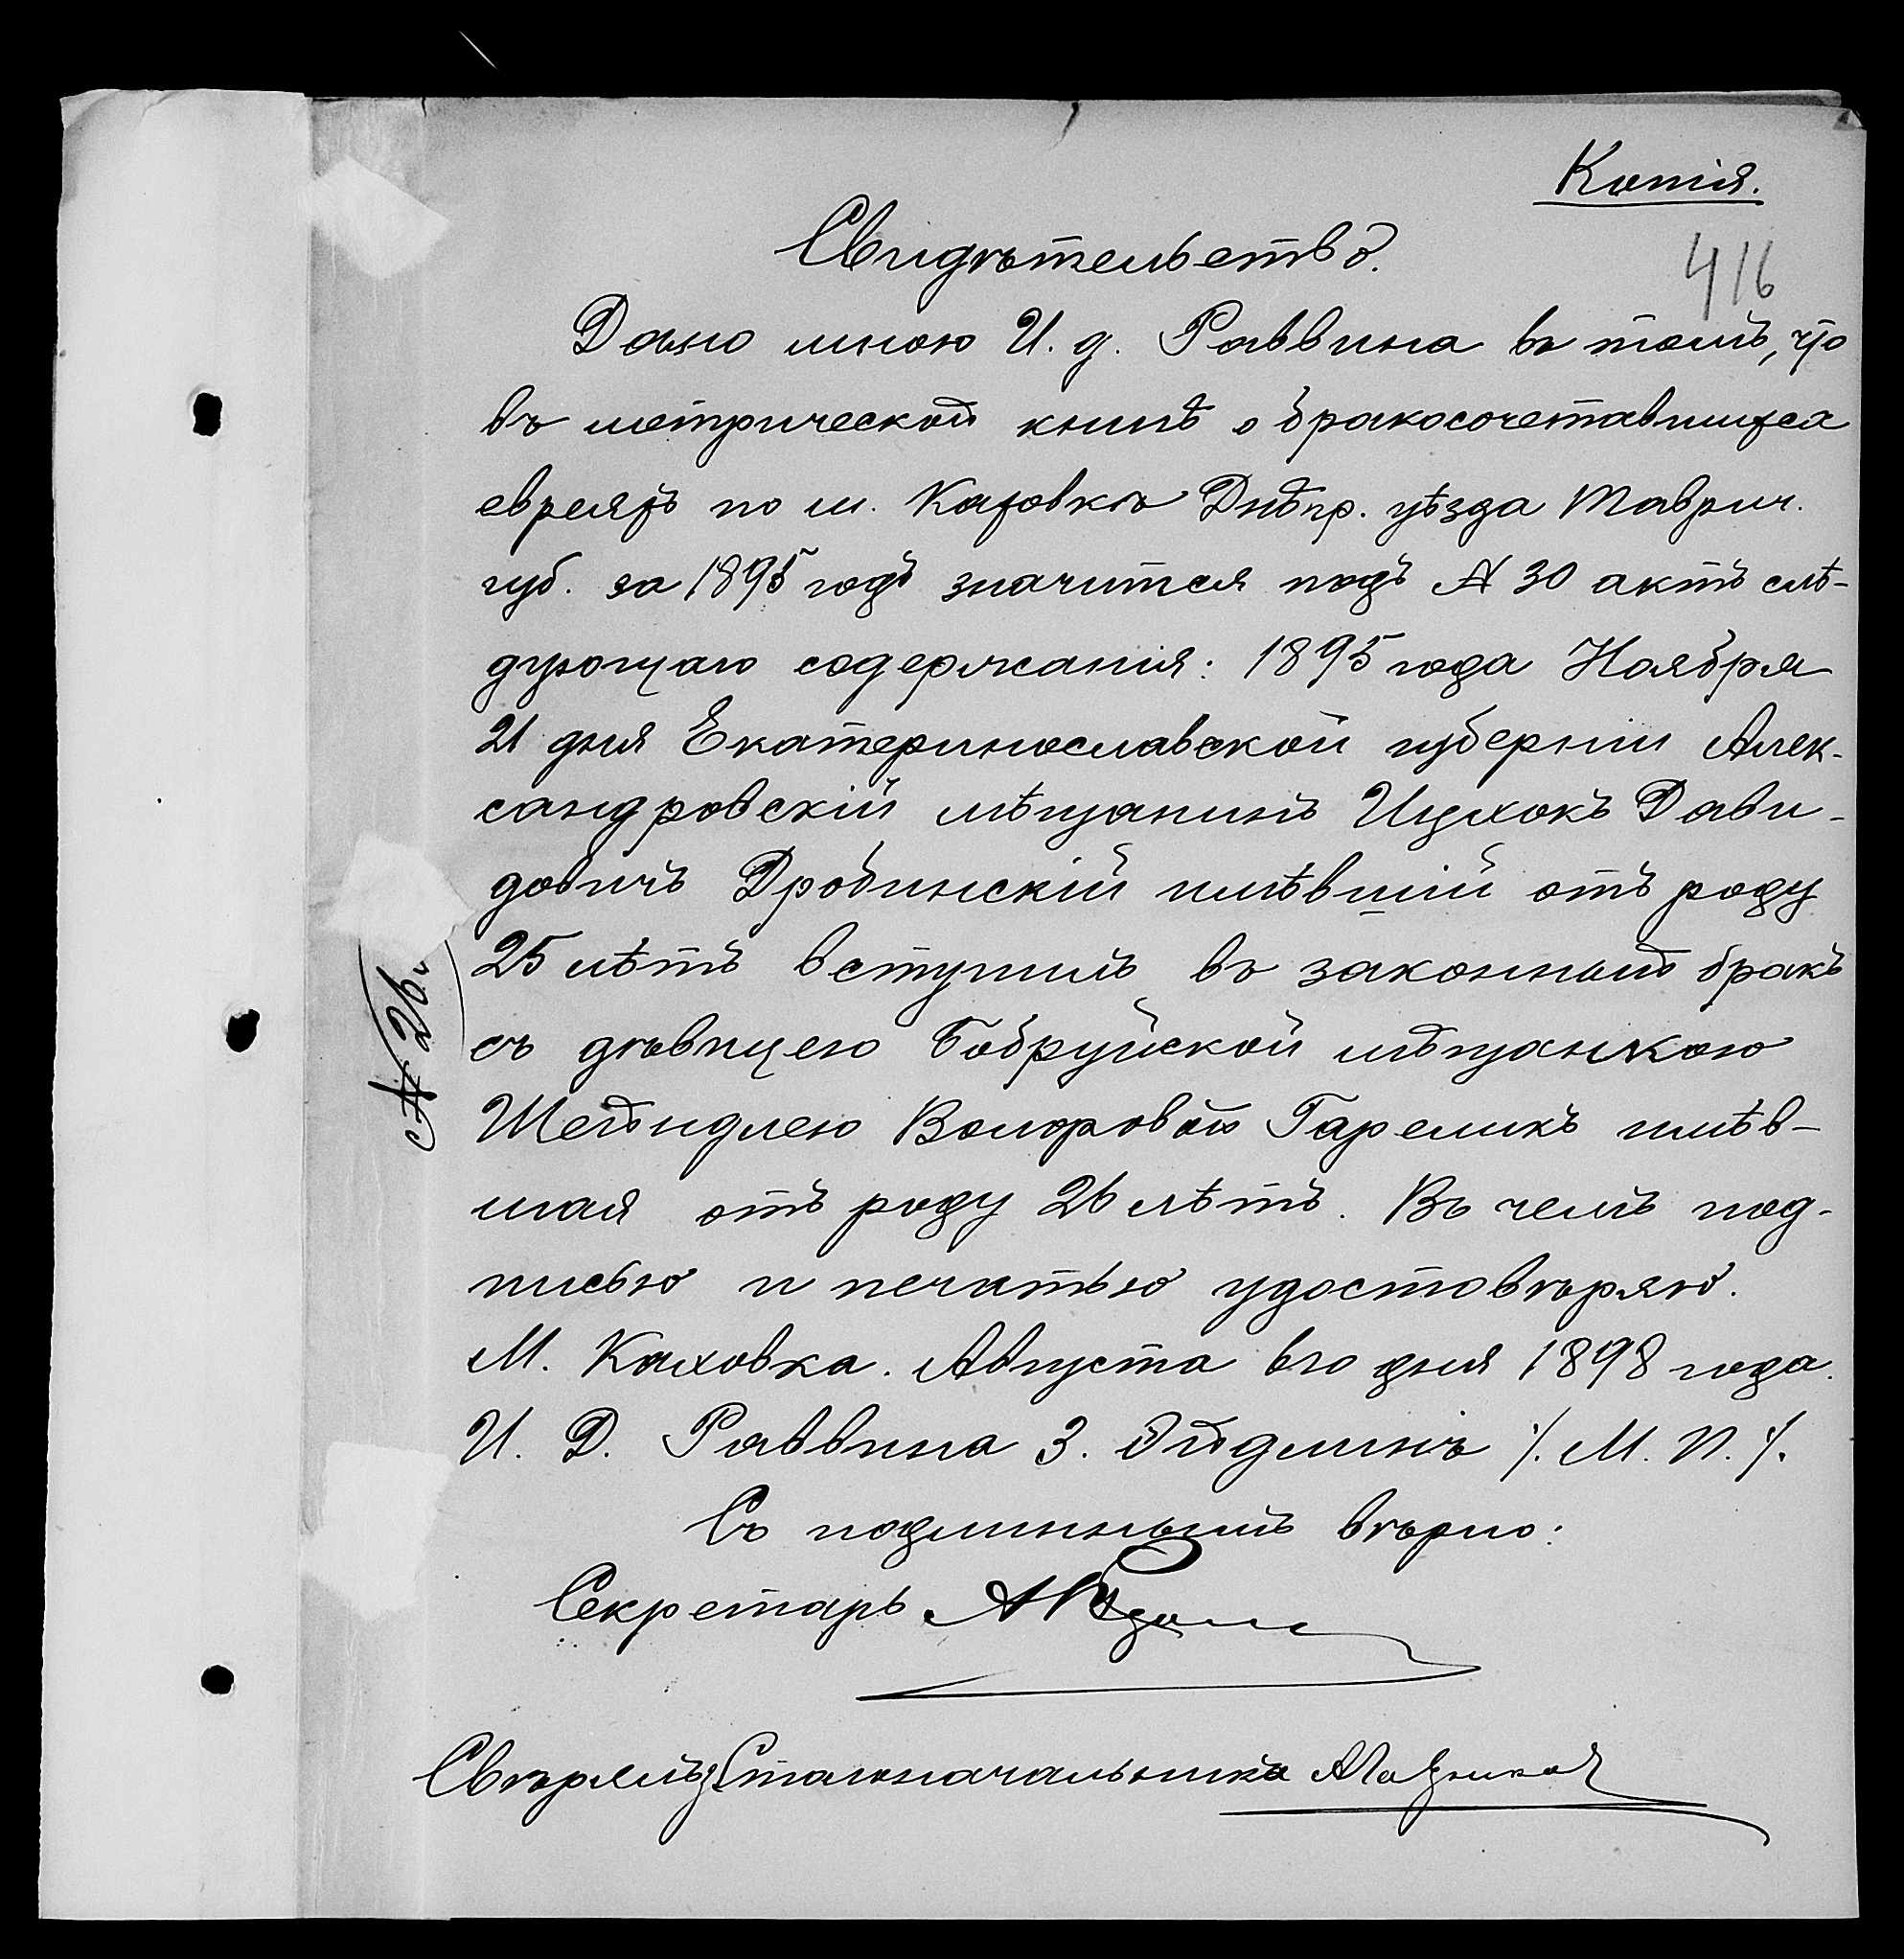 Копія.
416
Свидѣтельство.
Дано мною И. д. Раввина въ томъ, что
въ метрической книгѣ о бракосочетавшихся
евреяхъ по м. Каховкѣ Днѣпр. уѣзда Таврич.
губ. за 1895 годъ значится подъ № 30 актъ слѣ-
дующаго содержанія: 1895 года Ноября
21 дня Екатеринославской губерніи Алек-
сандровскій мѣщанинъ Ицхокъ Дави-
довичъ Дробинскій имѣвшій отъ роду
25 лѣтъ вступилъ въ законный бракъ
съ дѣвицею Бобруйской мѣщанкою
Шейндлею Гареликъ имѣв-
шая отъ роду 26 лѣтъ. Въ чемъ под-
писью и печатью удостовѣряю.
М. Каховка. Августа 6го дня 1898 года.
И. Д. Раввина З. Эйдлинъ /. М. П. /.
Съ подлиннымъ вѣрно:
Секретарь
Свѣрялъ: Столоначальника
№ 26